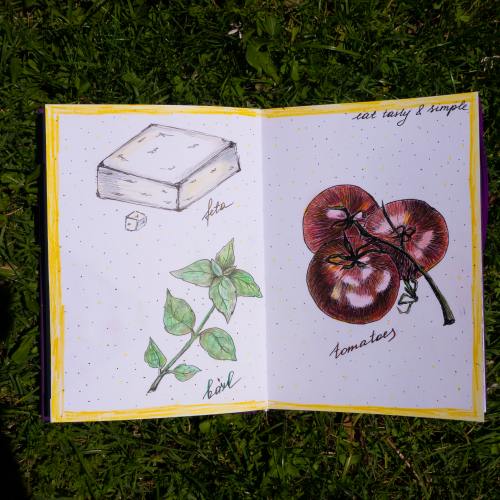 feta
basil
eat tasty & simple
tomatoes